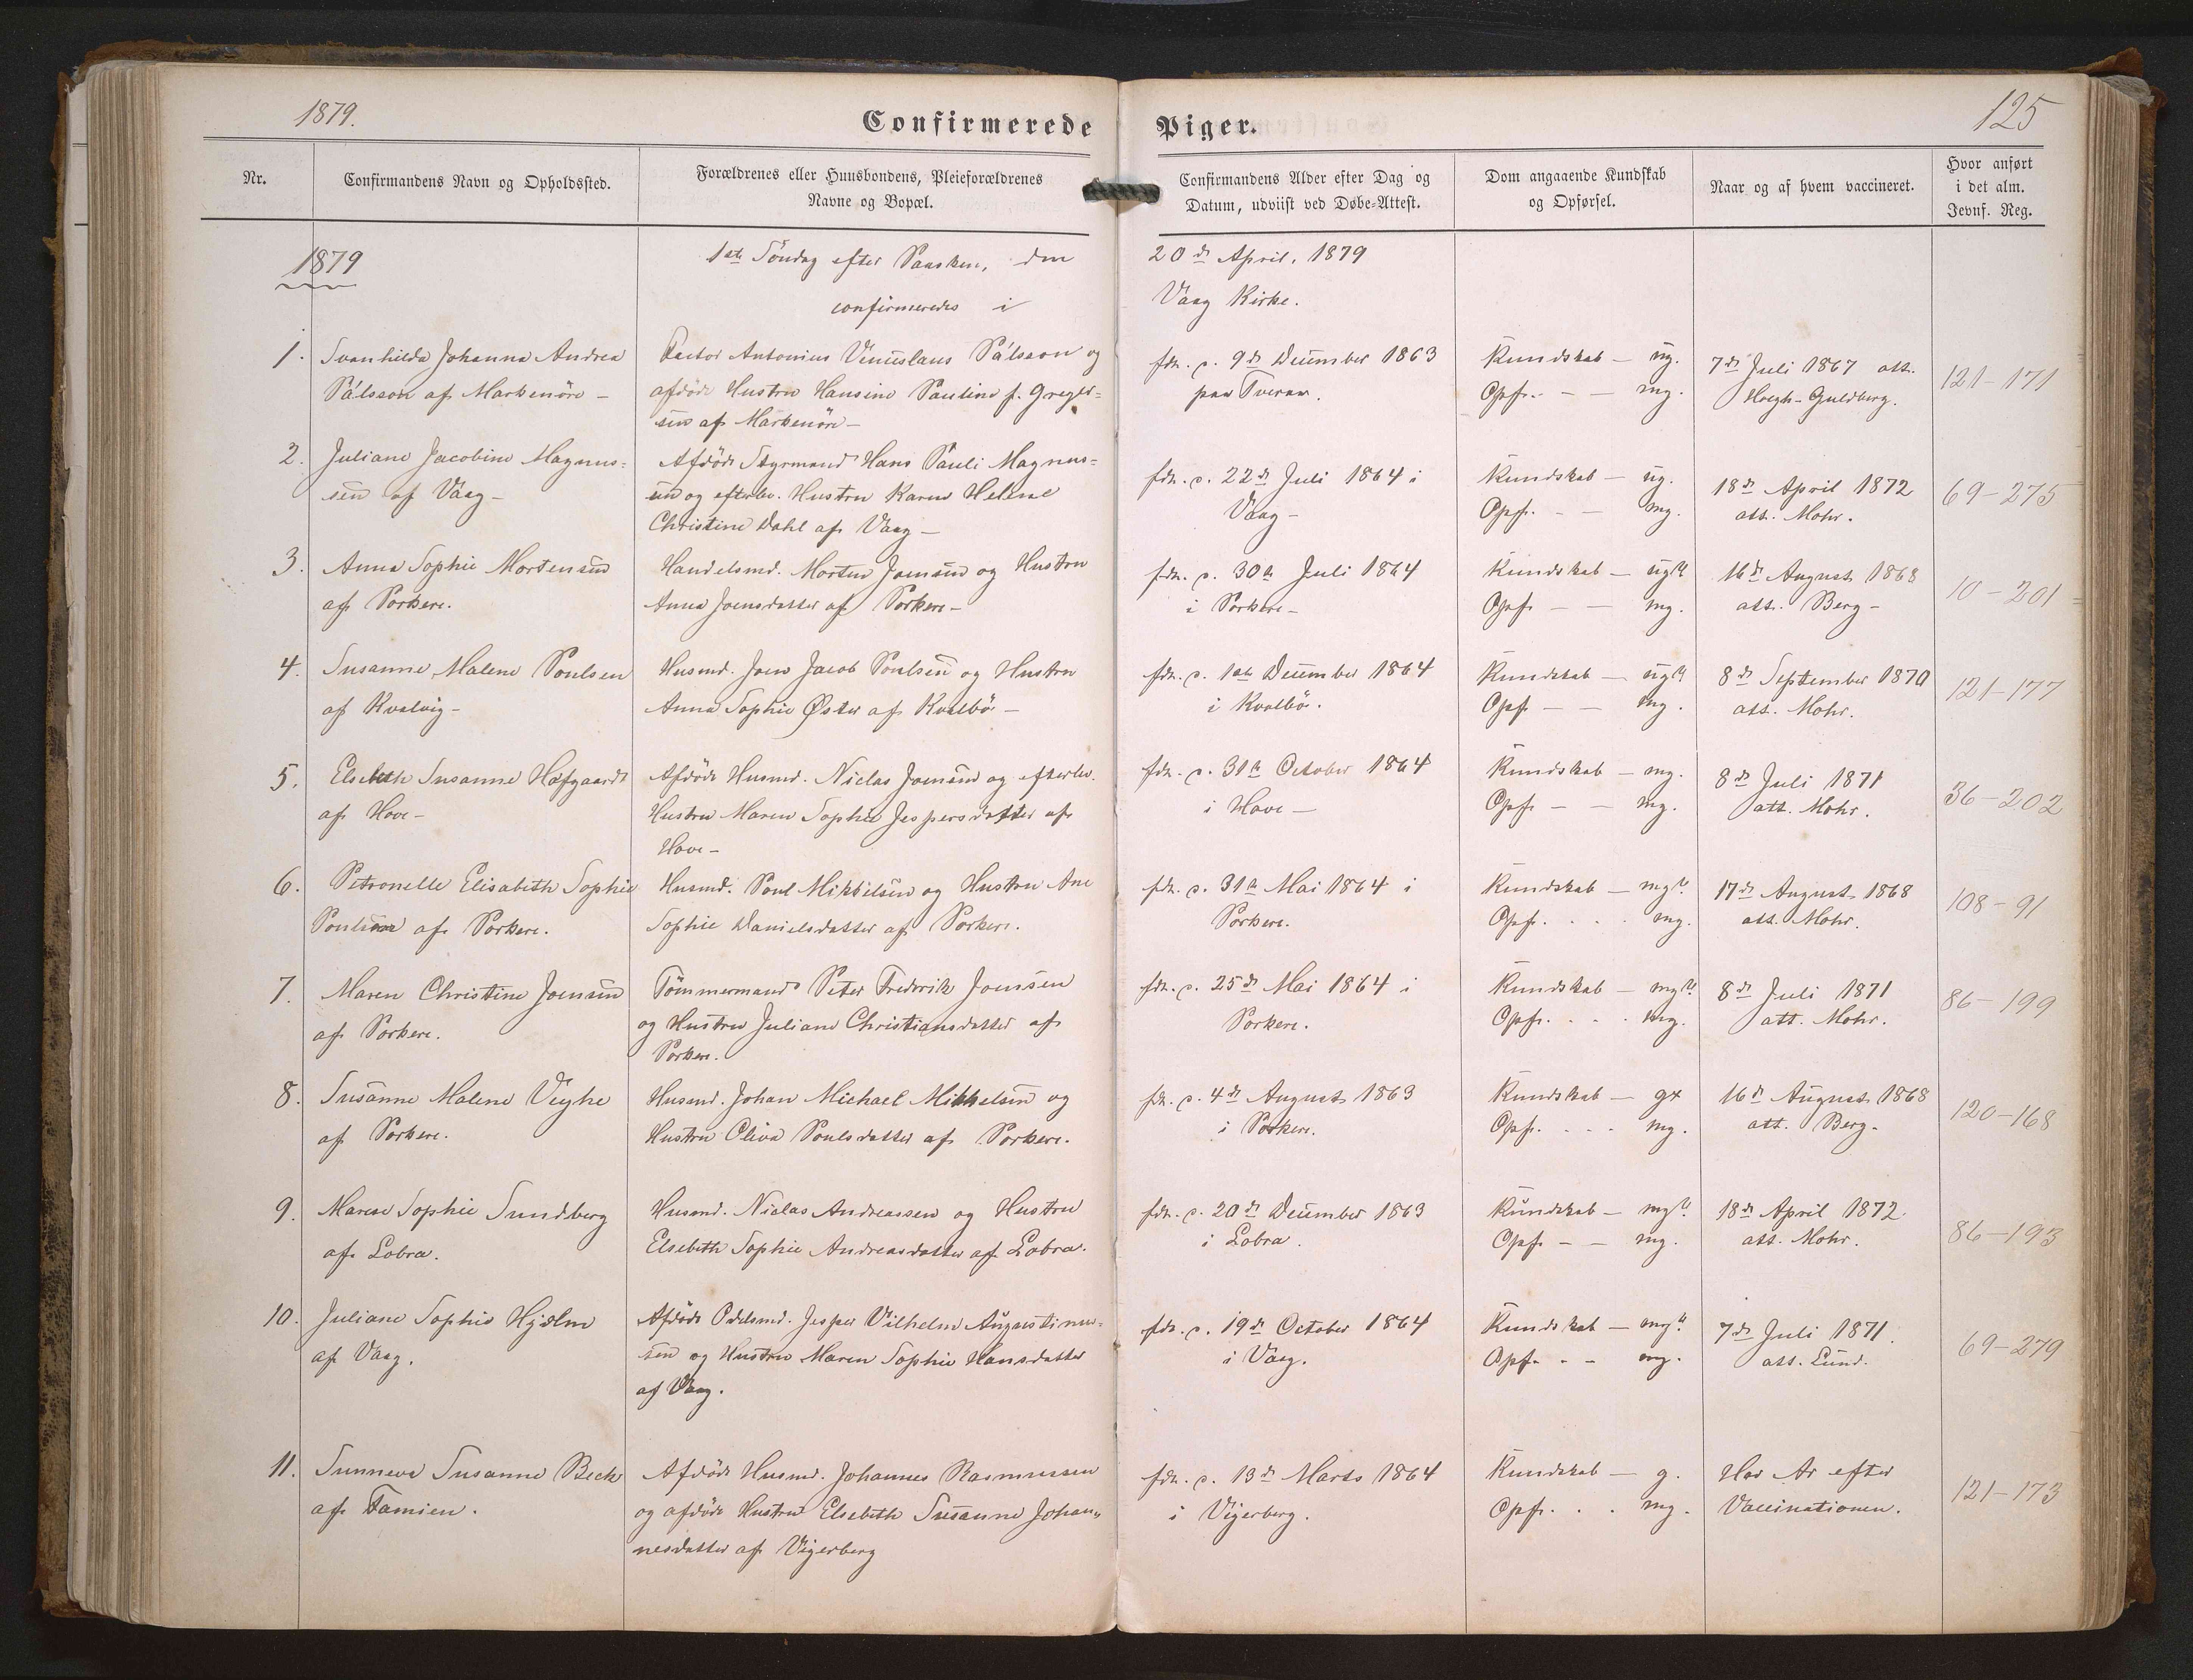 1879.
Confirmerede Piger.
125
Nr.
Confirmandens Navn og Opholdssted.
Forældrenes eller Huusbondens, Pleieforældrenes
Navne og Bopæl.
Confirmandens Alder efter Dag og
Datum, udviist ved Døbe-Attest.
Dom angaaende Kundskab
og Opførsel.
Naar og af hvem vaccineret.
Hvor anført
i det alm.
Jevnf. Reg.
1879
1ste Söndag efter Paasken, den 20de April. 1879
confirmeredes i Vaag Kirke.
1.
Svanhilda Johanna Andrea
Pálsson af Markenöre –
Factor Antonius Venceslaus Pálsson og
afdöde Hustru Hansine Pauline f. Greger=
sen af Markenöre –
fdt. d. 9de December 1863
paa Tveraa.
Kundskab – ug.
Opf. – – mg.
7de Juli 1867 att.
Høegh-Guldberg.
121–171
2.
Juliane Jacobine Magnus=
sen af Vaag –
Afdöde Styrmand Hans Pauli Magnus=
sen og efterlev. Hustru Karen Helene
Christine Dahl af Vaag –
fdt. d. 22de Juli 1864 i
Vaag –
Kundskab – ug.
Opf. – – mg.
18de April 1872
att. Mohr.
69–275
3.
Anna Sophie Mortensen
af Porkere.
Handelsmd. Morten Joensen og Hustru
Anna Joensdatter af Porkere –
fdt. d. 30te Juli 1864
i Porkere –
Kundskab – ug?
Opf. – – mg.
16de August 1868
att. Berg –
10–201
4.
Susanne Malene Poulsen
af Kvalvig –
Husmd. Joen Jacob Poulsen og Hustru
Anna Sophie Øster af Kvalbö –
fdt. d. 1ste December 1864
i Kvalbö.
Kundskab – ug?
Opf. – – mg.
8de September 1870
att. Mohr.
121–177
5.
Elsebeth Susanne Hofgaard
af Hove –
Afdöde Husmd. Niclas Joensen og efterlev.
Hustru Maren Sophie Jespersdatter af
Hove –
fdt. d. 31te October 1864
i Hove –
Kundskab – mg.
Opf. – – mg.
8de Juli 1871
att. Mohr.
36–202
6.
Petronelle Elisabeth Sophie
Poulsen af Porkere.
Husmd. Poul Mikkelsen og Hustru Ane
Sophie Danielsdatter af Porkere.
fdt. d. 31te Mai 1864 i
Porkere.
Kundskab – mg?
Opf. . . . mg.
17de August 1868
att. Mohr.
108–91
7.
Maren Christine Joensen
af Porkere.
Tömmermand Peter Frederik Joensen
og Hustru Juliane Christiansdatter af
Porkere.
fdt. d. 25de Mai 1864 i
Porkere.
Kundskab – mg?
Opf. . . . mg.
8de Juli 1871
att. Mohr.
86–199
8.
Susanne Malene Vieghe
af Porkere.
Husmd. Johan Michael Mikkelsen og
Hustru Oliva Poulsdatter af Porkere.
fdt. d. 4de August 1863
i Porkere.
Kundskab – g+
Opf. . . . mg.
16de August 1868
att. Berg.
120–168
9.
Maren Sophie Sundberg
af Lobra.
Husmd. Niclas Andreassen og Hustru
Elsebeth Sophie Andreasdatter af Lobra.
fdt. d. 20de December 1863
i Lobra.
Kundskab – mg?
Opf. – – mg.
18de April 1872
att. Mohr.
86–193
10.
Juliane Sophie Hjelm
af Vaag.
Afdöde Odelsmd. Jesper Vilhelm Augustinus=
sen og Hustru Maren Sophie Hansdatter
af Vaag.
fdt. d. 19de October 1864
i Vaag.
Kundskab – mg?
Opf. – – mg.
7de Juli 1871.
att. Lund.
69–279
11.
Sunneva Susanne Beck
af Famien.
Afdöde Husmd. Johannes Rasmussen
og afdöde Hustru Elsebeth Susanne Johan=
nesdatter af Vigerberg
fdt. d. 13de Marts 1864
i Vigerberg.
Kundskab – g.
Opf. . . mg.
Har Ar efter
Vaccinationen.
121–173